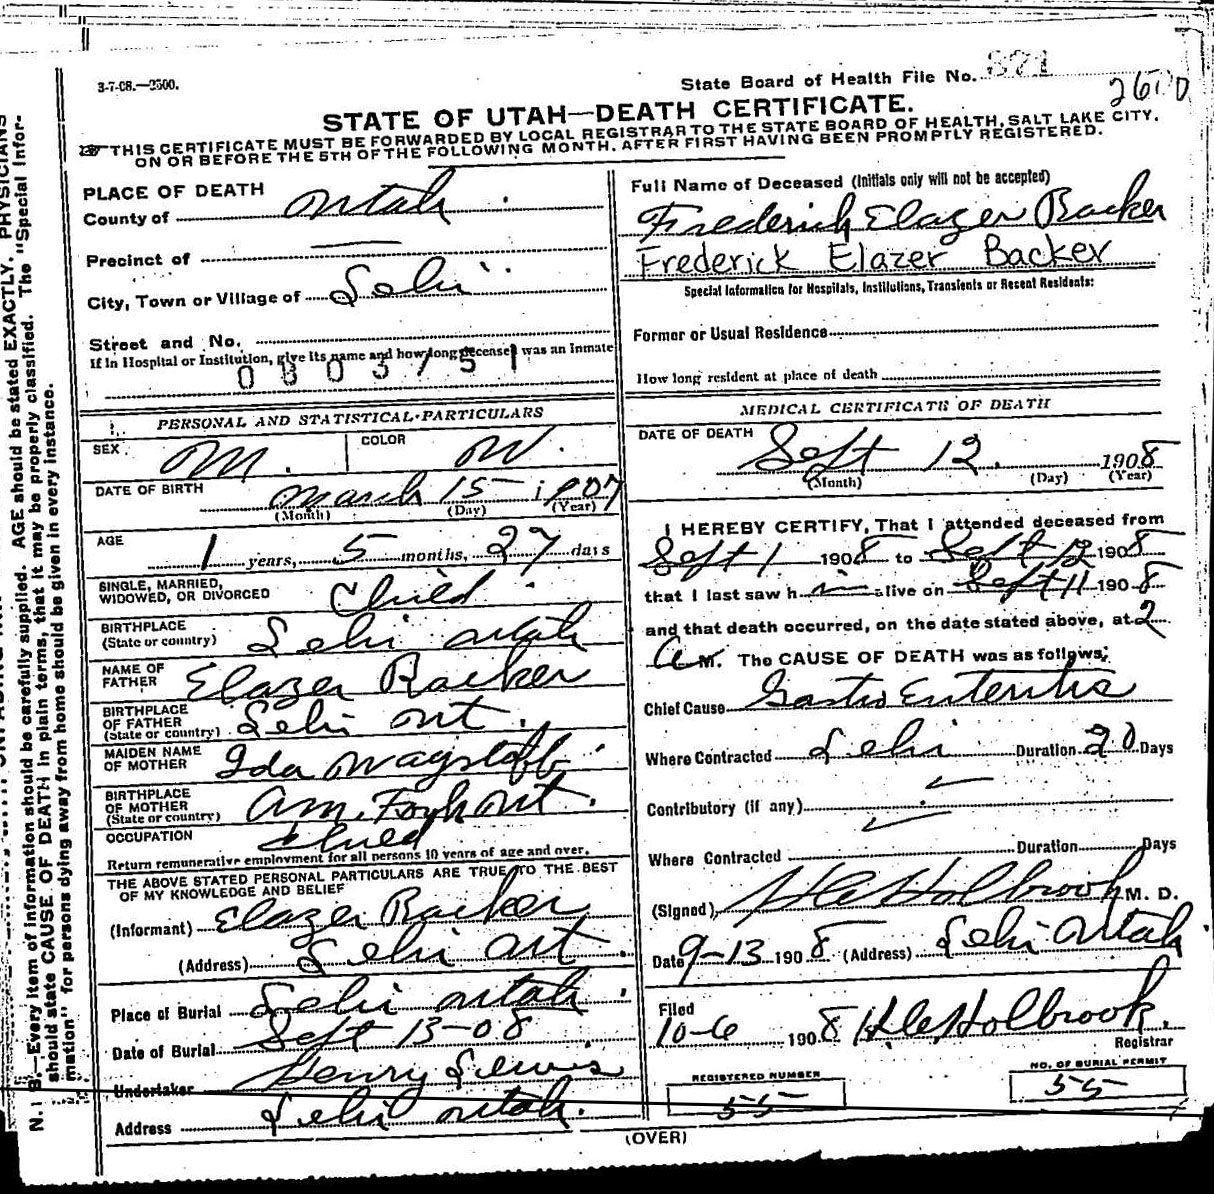 3-7-08.—2500.
State Board of Health File No. 871
2600
STATE OF UTAH—DEATH CERTIFICATE.
THIS CERTIFICATE MUST BE FORWARDED BY LOCAL REGISTRAR TO THE STATE BOARD OF HEALTH, SALT LAKE CITY,
ON OR BEFORE THE 5TH OF THE FOLLOWING MONTH, AFTER FIRST HAVING BEEN PROMPTLY REGISTERED.
PLACE OF DEATH
County of Utah
Precinct of
City, Town or Village of Lehi
Street and No.
If in Hospital or Institution, give its name and how long deceased was an Inmate
PERSONAL AND STATISTICAL PARTICULARS
SEX M. COLOR W.
DATE OF BIRTH March 15 1907
(Month) (Day) (Year)
AGE
1 years, 5 months, 27 days
SINGLE, MARRIED,
WIDOWED, OR DIVORCED Child
BIRTHPLACE
(State or country) Lehi Utah
NAME OF
FATHER Elazer Backer
BIRTHPLACE
OF FATHER
(State or country) Lehi Ut.
MAIDEN NAME
OF MOTHER Ida Wagstaff
BIRTHPLACE
OF MOTHER
(State or country) Am. Fork Ut.
OCCUPATION Child
Return remunerative employment for all persons 10 years of age and over.
THE ABOVE STATED PERSONAL PARTICULARS ARE TRUE TO THE BEST
OF MY KNOWLEDGE AND BELIEF
(Informant) Elazer Backer
(Address) Lehi Ut.
Place of Burial Lehi Utah.
Date of Burial Sept 13-08
Undertaker Henry Lewis
Address Lehi Utah.
Full Name of Deceased (Initials only will not be accepted)
Frederick Elazer Backer
Frederick Elazer Backer
Special Information for Hospitals, Institutions, Transients or Recent Residents:
Former or Usual Residence
How long resident at place of death
MEDICAL CERTIFICATE OF DEATH
DATE OF DEATH
Sept 12. 1908
(Month) (Day) (Year)
I HEREBY CERTIFY, That I attended deceased from
Sept 1 1908 to Sept 12 1908
that I last saw h im alive on Sept 11 1908
and that death occurred, on the date stated above, at 2
A M. The CAUSE OF DEATH was as follows:
Chief Cause Gastro Enteritis
Where Contracted Lehi Duration 20 Days
Contributory (if any)
Where Contracted Duration Days
(Signed) Holbrook M. D.
Date 9-13 1908 (Address) Lehi Utah
Filed
10-6 1908 Holbrook.
Registrar
REGISTERED NUMBER
55
NO. OF BURIAL PERMIT
55
(OVER)
N. B. Every item of information should be carefully supplied. AGE should be stated EXACTLY. PHYSICIANS
should state CAUSE OF DEATH in plain terms, that it may be properly classified. The "Special Infor-
mation" for persons dying away from home should be given in every instance.